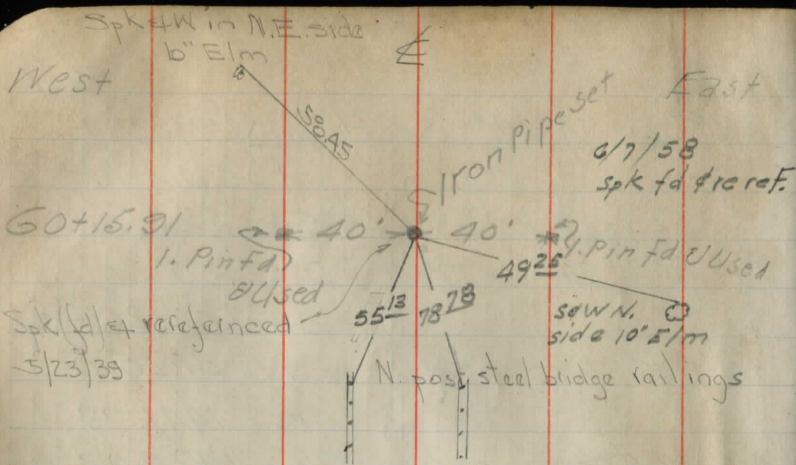 Spk & W in N.E. side
6" Elm
West
℄
East
50.45
Iron Pipe set
6/7/58
Spk fd & reref.
60+15.91
40'
40'
1. Pin fd
& Used
1. Pin fd & Used
49 25
Spk (fd) & rereferenced
5/23/39
55 13
78 28
S & W N.
side 10" Elm
N. post steel bridge railings